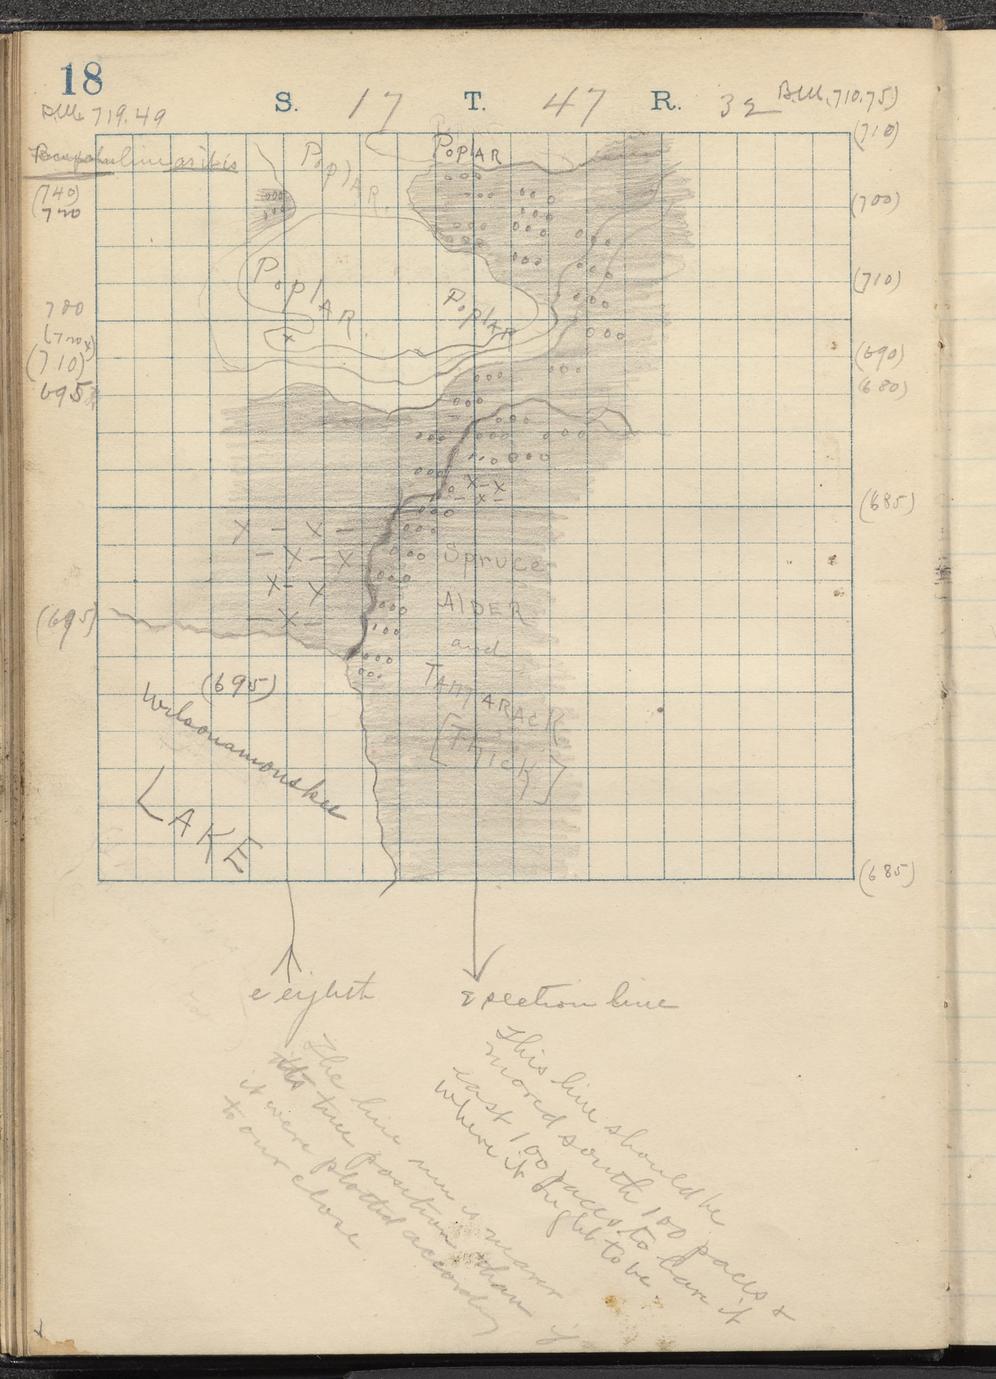 18
S. 17 T. 47 R. 32
B.M. 719.49
B.M. 710.75)
(710)
line as it is
Poplar
PoplAR
(740)
720
(700)
Poplar
PoplAR
(710)
700
(710)
695
(690)
(680)
(685)
Spruce
AlDER
and
TAMARACK
[Thick]
(695)
(695)
LAKE
(685)
e eighth
e section line
The line run is nearer
its true position than if
it were plotted according
to our close.
This line should be
moved south 100 paces &
east 100 paces to have it
where it ought to be